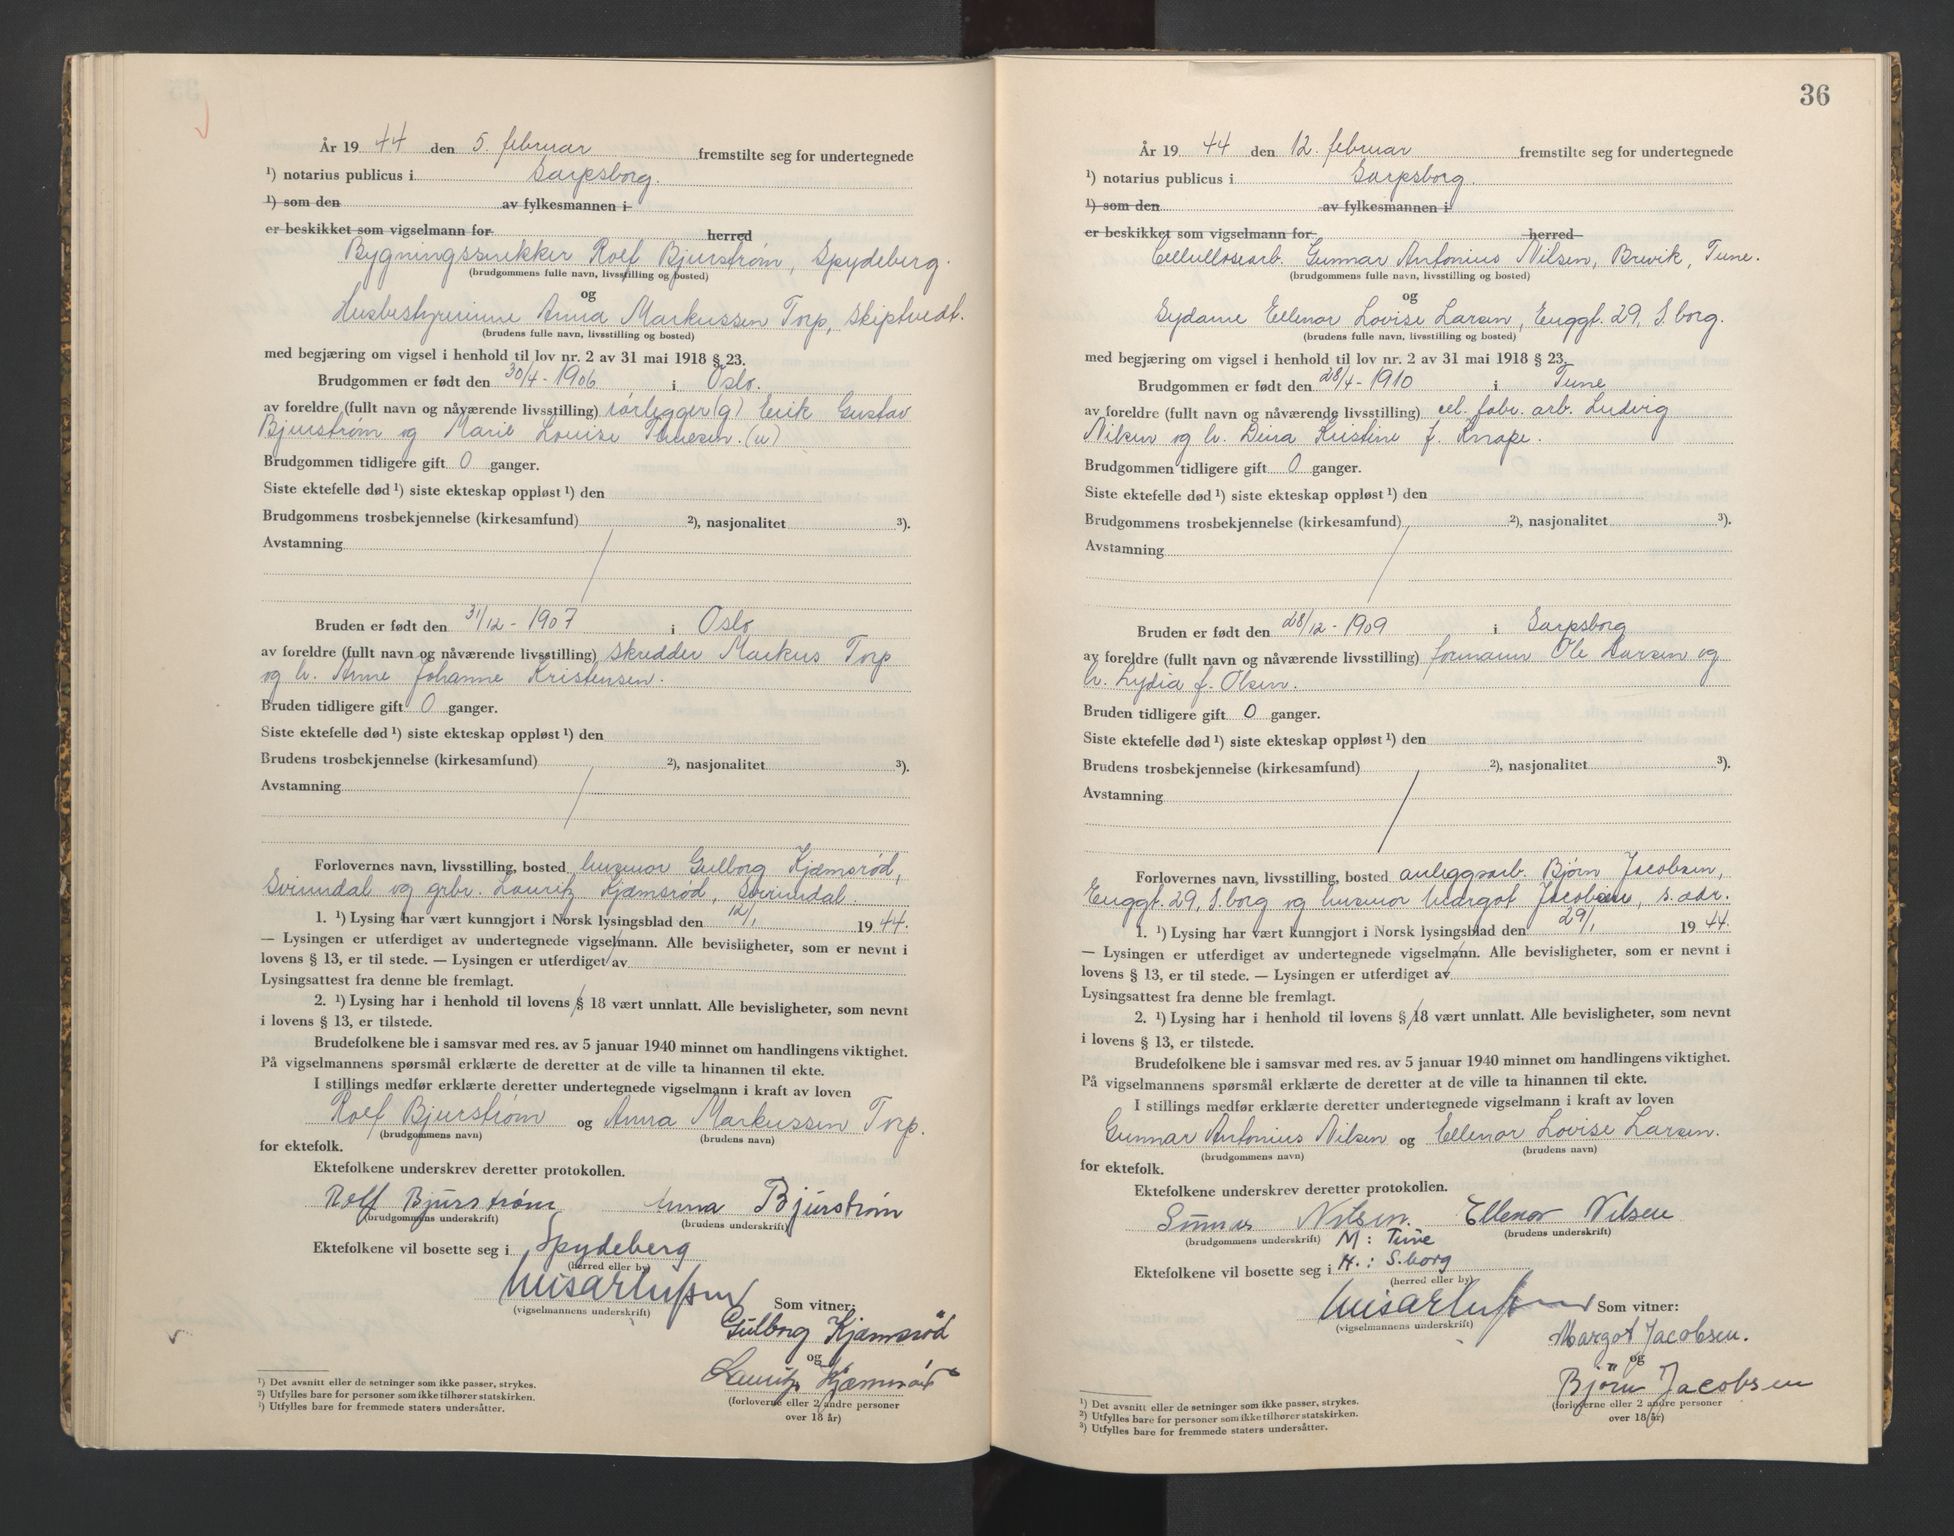 År 19 44 den 5. februar fremstilte seg for undertegnede
¹) notarius publicus i Sarpsborg.
¹) som den av fylkesmannen i
er beskikket som vigselmann for herred
Bygningssnekker Rolf Bjurstrøm, Spydeberg.
(brudgommens fulle navn, livsstilling og bosted)
og
Husbestyrerinne Anna Markussen Torp, Skiptvedt.
(brudens fulle navn, livsstilling og bosted)
med begjæring om vigsel i henhold til lov nr. 2 av 31 mai 1918 § 23.
Brudgommen er født den 30/4 - 1906 i Oslo.
av foreldre (fullt navn og nåværende livsstilling) rørlegger (g) Erik Gustav
Bjurstrøm og Marie Louise Thuesen. (u)
Brudgommen tidligere gift 0 ganger.
Siste ektefelle død ¹) siste ekteskap oppløst ¹) den
Brudgommens trosbekjennelse (kirkesamfund) ²), nasjonalitet ³).
Avstamning
Bruden er født den 31/12 - 1907 i Oslo
av foreldre (fullt navn og nåværende livsstilling) skredder Markus Torp
og h. Anne Johanne Kristensen.
Bruden tidligere gift 0 ganger.
Siste ektefelle død ¹) siste ekteskap oppløst ¹) den
Brudens trosbekjennelse (kirkesamfund) ²), nasjonalitet ³).
Avstamning
Forlovernes navn, livsstilling, bosted husmor Gulborg Kjæmsrød,
Svinndal og grbr. Lauritz Kjæmsrød, Svinndal.
1. ¹) Lysing har vært kunngjort i Norsk lysingsblad den 12/1 19 44.
— Lysingen er utferdiget av undertegnede vigselmann. Alle bevisligheter, som er nevnt i
lovens § 13, er til stede. — Lysingen er utferdiget av
Lysingsattest fra denne ble fremlagt.
2. ¹) Lysing har i henhold til lovens § 18 vært unnlatt. Alle bevisligheter, som nevnt
i lovens § 13, er tilstede.
Brudefolkene ble i samsvar med res. av 5 januar 1940 minnet om handlingens viktighet.
På vigselmannens spørsmål erklærte de deretter at de ville ta hinannen til ekte.
I stillings medfør erklærte deretter undertegnede vigselmann i kraft av loven
Rolf Bjurstrøm og Anna Markussen Torp.
(brudgommens navn) (brudens navn)
for ektefolk.
Ektefolkene underskrev deretter protokollen.
Rolf Bjurstrøm Anna Bjurstrøm
(brudgommens underskrift) (brudens underskrift)
Ektefolkene vil bosette seg i Spydeberg
(herred eller by)
Som vitner:
(vigselmannens underskrift)
Gulborg Kjæmsrød
og
Lauritz Kjæmsrød
(forloverne eller 2 andre personer
over 18 år)
¹) Det avsnitt eller de setninger som ikke passer, strykes.
²) Utfylles bare for personer som ikke tilhører statskirken.
³) Utfylles bare for fremmede staters undersåtter.
36
År 19 44 den 12. februar fremstilte seg for undertegnede
¹) notarius publicus i Sarpsborg.
¹) som den av fylkesmannen i
er beskikket som vigselmann for herred
Cellullosearb. Gunnar Antonius Nilsen, Brevik, Tune.
(brudgommens fulle navn, livsstilling og bosted)
og
Sydame Ellenor Lovise Larsen, Enggt. 29, S.borg.
(brudens fulle navn, livsstilling og bosted)
med begjæring om vigsel i henhold til lov nr. 2 av 31 mai 1918 § 23.
Brudgommen er født den 28/4 - 1910 i Tune
av foreldre (fullt navn og nåværende livsstilling) cel. fabr. arb. Ludvig
Nilsen og h. Deina Kristine f. Knape.
Brudgommen tidligere gift 0 ganger.
Siste ektefelle død ¹) siste ekteskap oppløst ¹) den
Brudgommens trosbekjennelse (kirkesamfund) ²), nasjonalitet ³).
Avstamning
Bruden er født den 28/12 - 1909 i Sarpsborg
av foreldre (fullt navn og nåværende livsstilling) formann Ole Larsen og
h. Lydia f. Olsen.
Bruden tidligere gift 0 ganger.
Siste ektefelle død ¹) siste ekteskap oppløst ¹) den
Brudens trosbekjennelse (kirkesamfund) ²), nasjonalitet ³).
Avstamning
Forlovernes navn, livsstilling, bosted anleggsarb. Bjørn Jacobsen,
Enggt. 29, S.borg og husmor Margot Jacobsen, s. adr.
1. ¹) Lysing har vært kunngjort i Norsk lysingsblad den 29/1 19 44.
— Lysingen er utferdiget av undertegnede vigselmann. Alle bevisligheter, som er nevnt i
lovens § 13, er til stede. — Lysingen er utferdiget av
Lysingsattest fra denne ble fremlagt.
2. ¹) Lysing har i henhold til lovens § 18 vært unnlatt. Alle bevisligheter, som nevnt
i lovens § 13, er tilstede.
Brudefolkene ble i samsvar med res. av 5 januar 1940 minnet om handlingens viktighet.
På vigselmannens spørsmål erklærte de deretter at de ville ta hinannen til ekte.
I stillings medfør erklærte deretter undertegnede vigselmann i kraft av loven
Gunnar Antonius Nilsen og Ellenor Lovise Larsen.
(brudgommens navn) (brudens navn)
for ektefolk.
Ektefolkene underskrev deretter protokollen.
Gunnar Nilsen. Ellenor Nilsen
(brudgommens underskrift) M: Tune (brudens underskrift)
Ektefolkene vil bosette seg i H.: S.borg
(herred eller by)
Som vitner:
(vigselmannens underskrift)
Margot Jacobsen.
og
Bjørn Jacobsen
(forloverne eller 2 andre personer
over 18 år)
¹) Det avsnitt eller de setninger som ikke passer, strykes.
²) Utfylles bare for personer som ikke tilhører statskirken.
³) Utfylles bare for fremmede staters undersåtter.